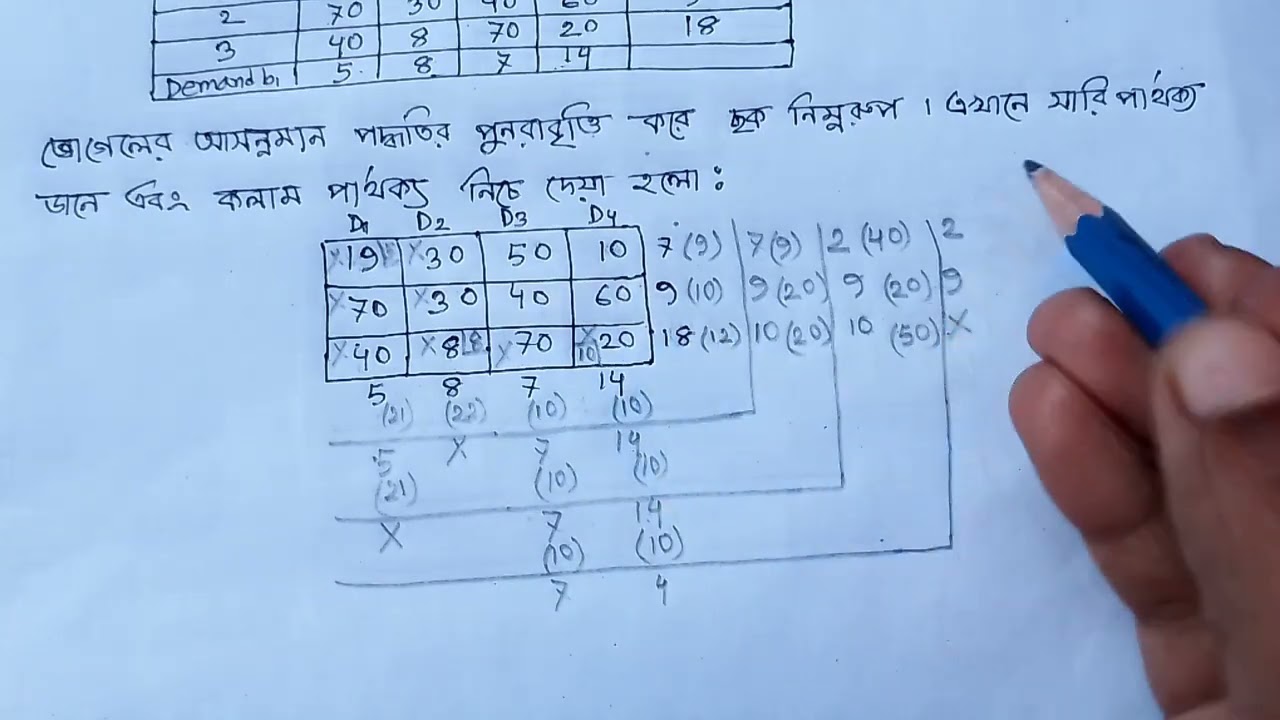 2 70 30 40 60
3 40 8 70 20 18
Demand bj 5 8 7 14
ভোগেলের আসন্নমান পদ্ধতির পুনরাবৃত্তি করে ছক নিম্নরুপ । এখানে সারি পার্থক্য
ডানে এবং কলাম পার্থক্য নিচে দেয়া হলো :
D1 D2 D3 D4
x19 5 x30 50 10 7 (9) 7 (9) 2 (40) 2
x70 x30 40 60 9 (10) 9 (20) 9 (20) 9
x40 x8 8 x70 x20 10 18 (12) 10 (20) 10 (50) x
5 8 7 14
(21) (22) (10) (10)
5 x 7 14
(21) (10) (10)
x 7 14
(10) (10)
7 4